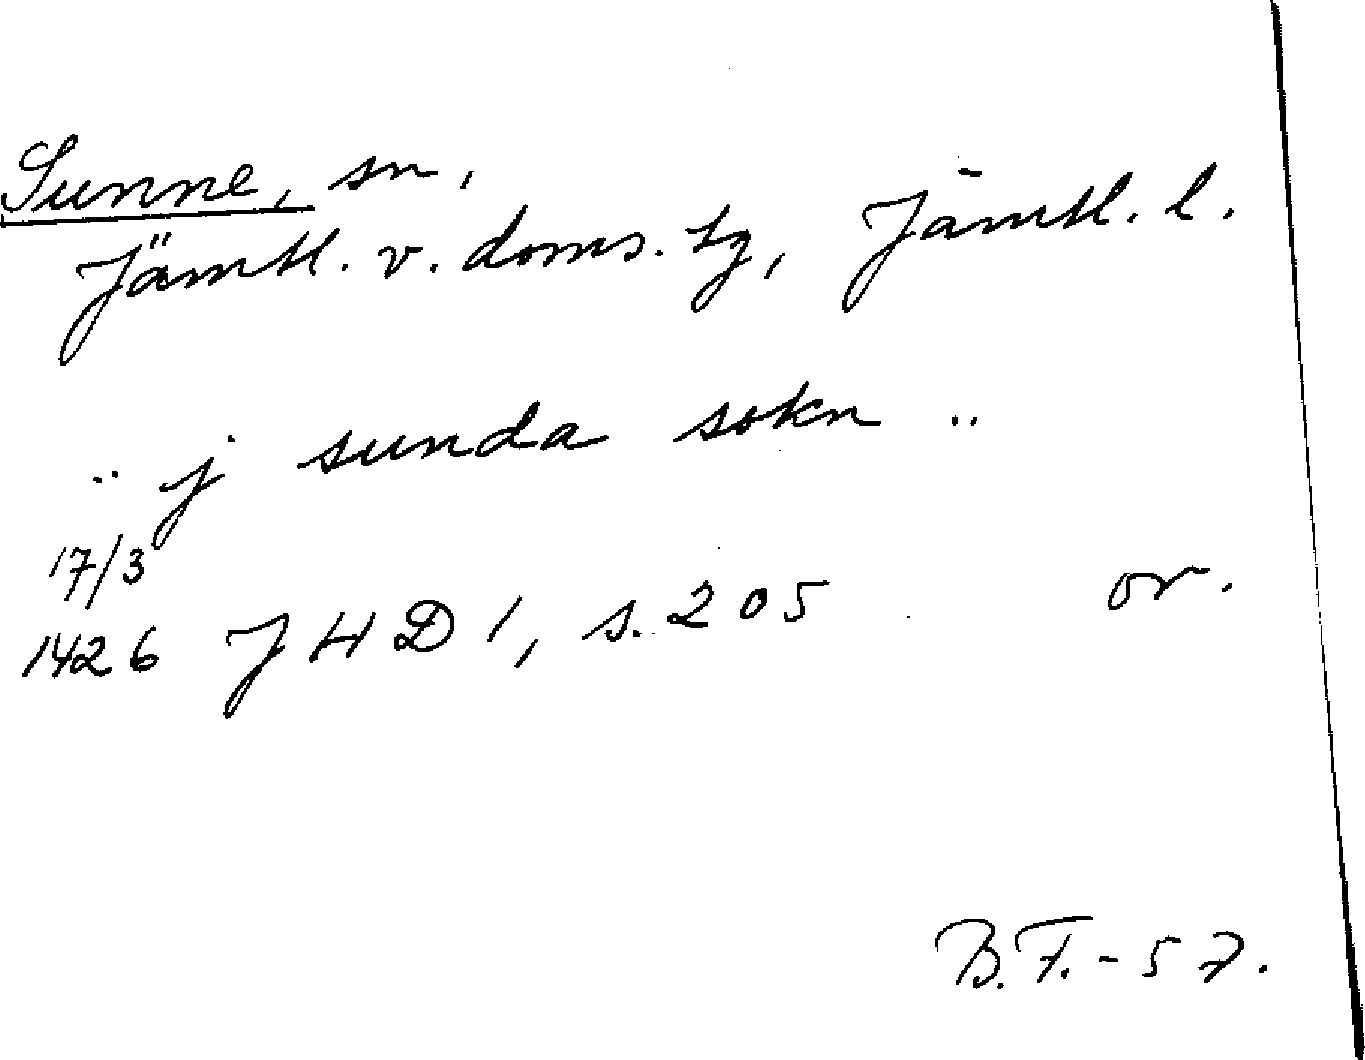 Sunne, sn,
Jämtl. v. doms. tg, Jämtl. l.
.. j sunda sokn ..
17/3
1426 J H D 1, s. 205 or.
B.F.-57.